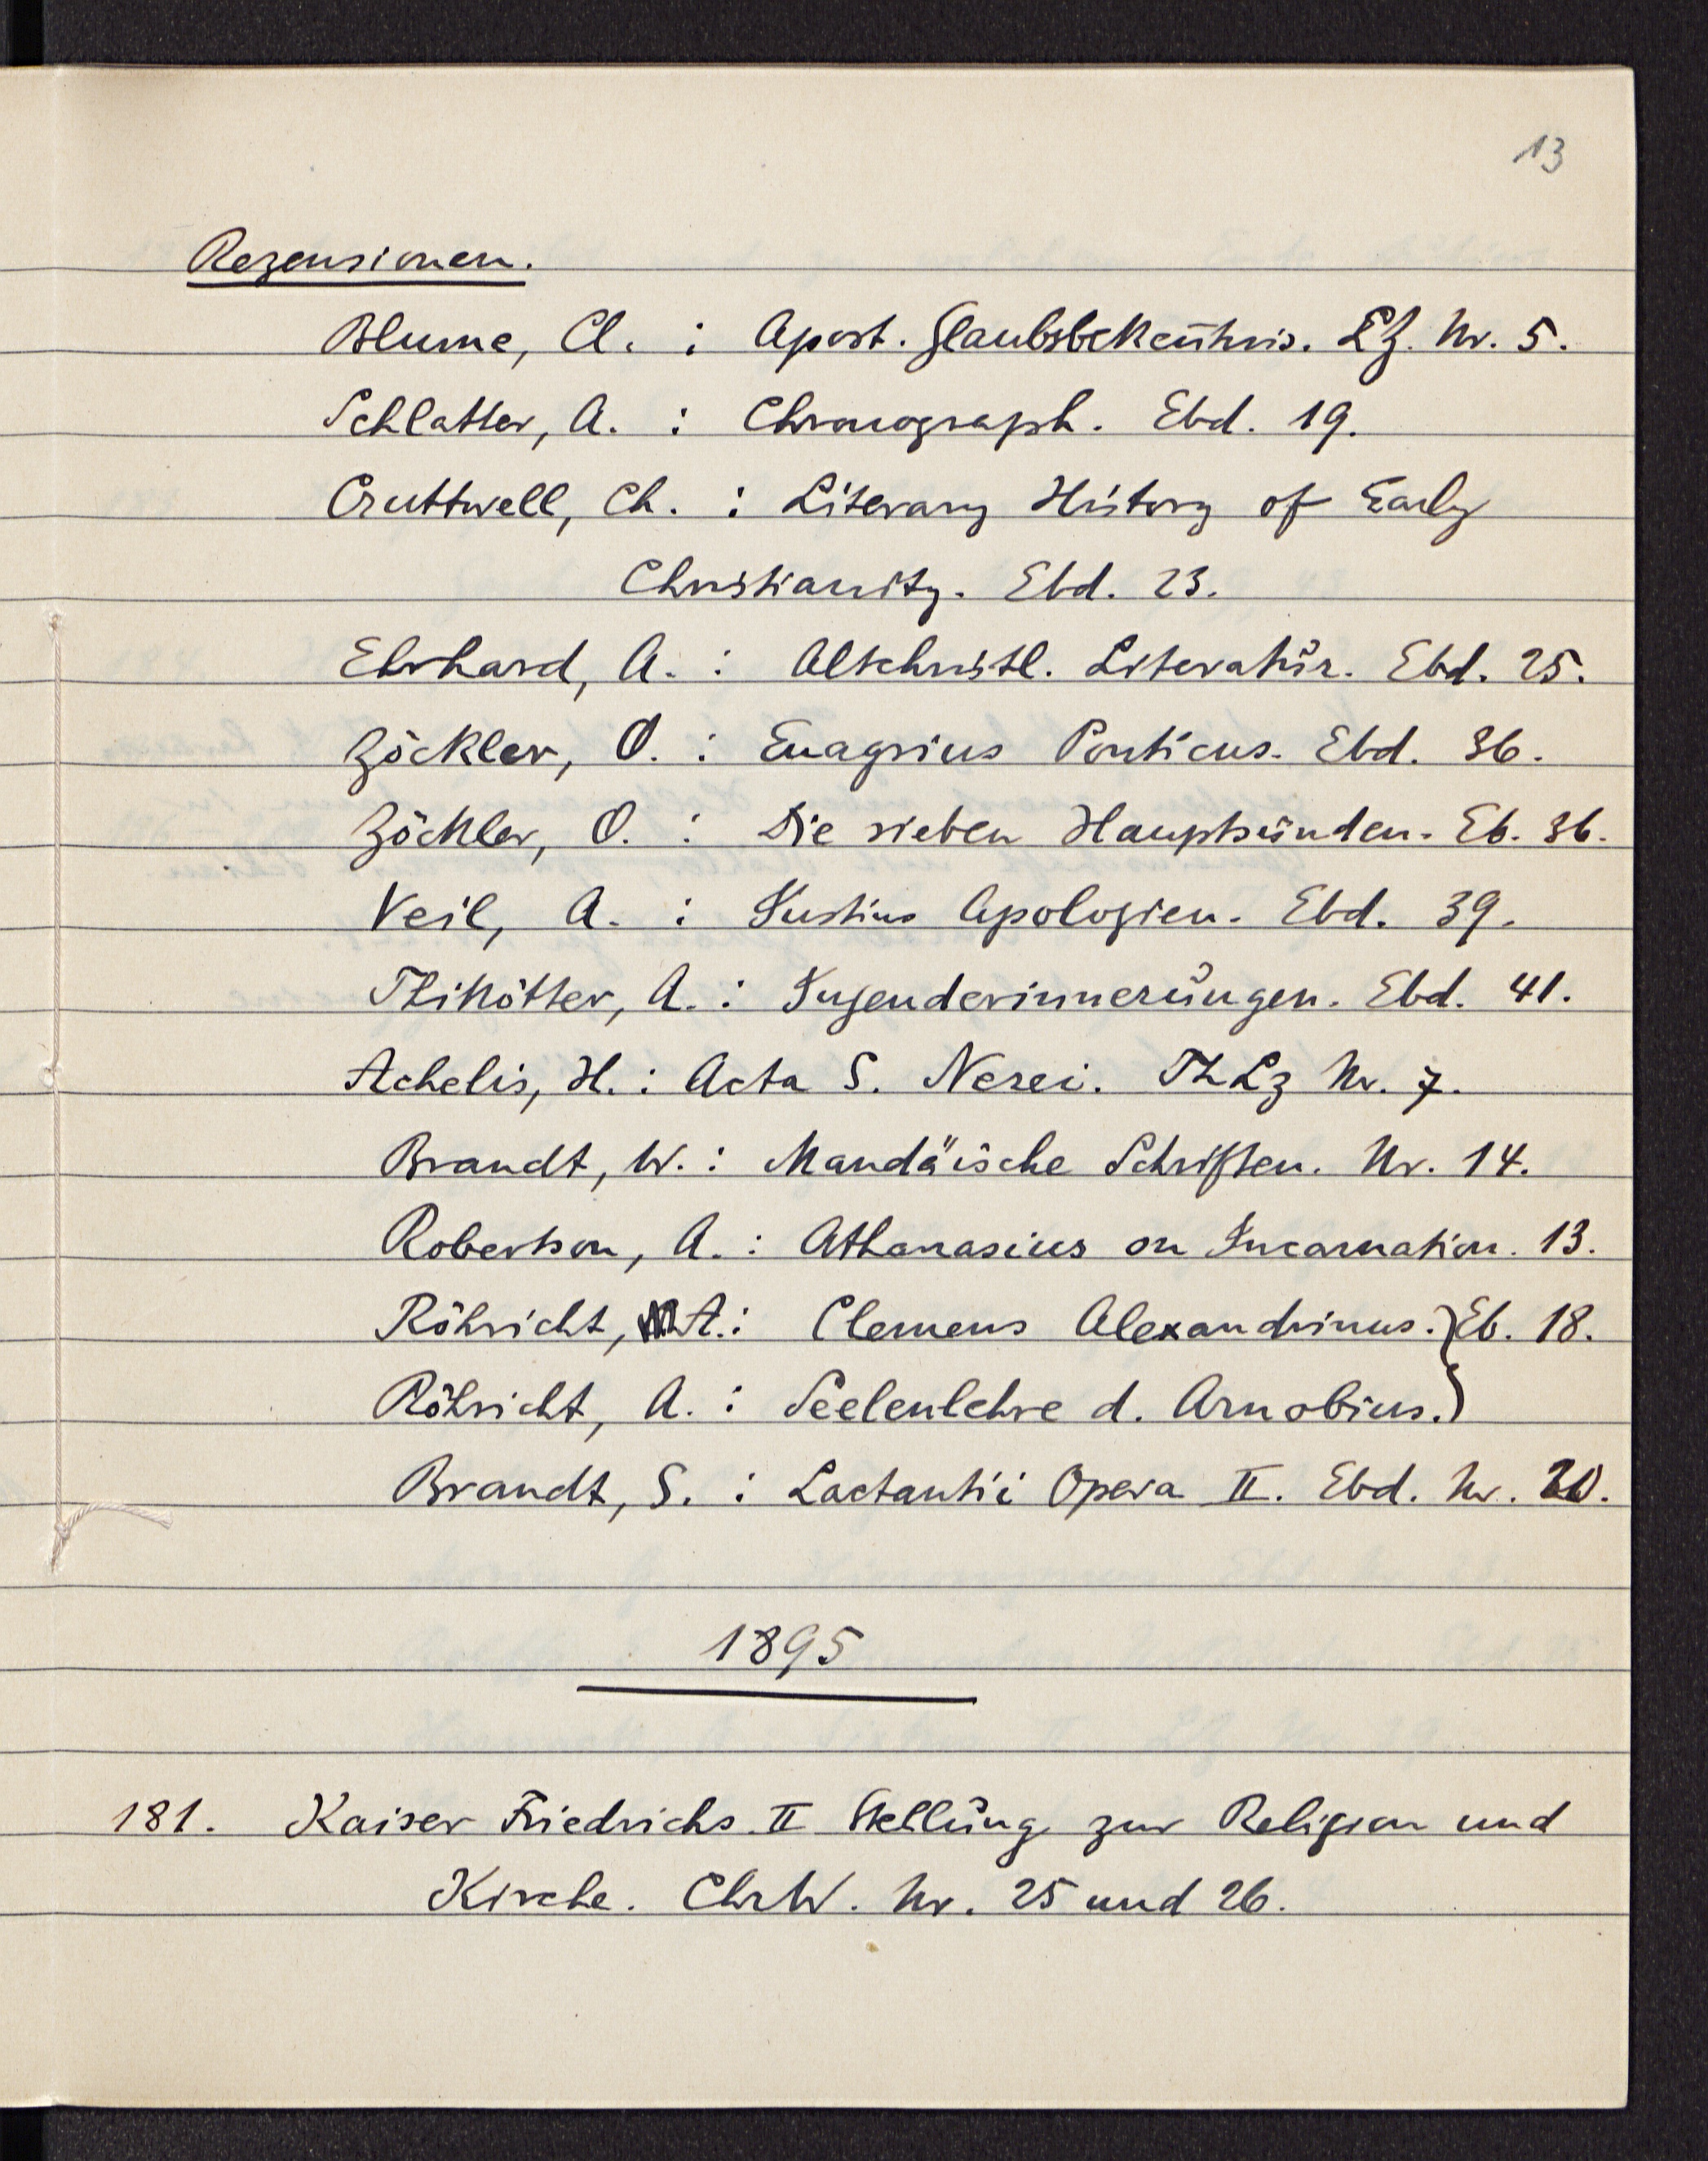 13
Rezensionen.
Blume, Cl. : Apost. Glaubsbekeñtnis. LZ. Nr. 5.
Schlatter, A. : Chronograph. Ebd. 19.
Cruttwell, Ch. : Literary History of Early
Christianity. Ebd. 23.
Ehrhard, A. : Altchristl. Literatur. Ebd. 25.
Zöckler, O. : Euagrius Ponticus. Ebd. 36.
Zöckler, O. : Die sieben Hauptsünden. Eb. 36.
Veil, A. : Justins Apologien. Ebd. 39.
Thikötter, A. : Jugenderinnerungen. Ebd. 41.
Achelis, H. : Acta S. Nerei. ThLz Nr. 7.
Brandt, W. : Mandäische Schriften. Nr. 14.
Robertson, A. : Athanasius on Incarnation. 13.
Röhricht, A. : Clemens Alexandrinus. } Eb. 18.
Röhricht, A. : Seelenlehre d. Arnobius. }
Brandt, S. : Lactantii Opera II. Ebd. Nr. 20.
1895
181. Kaiser Friedrichs II Stellung zur Religion und
Kirche. ChrW. Nr. 25 und 26.